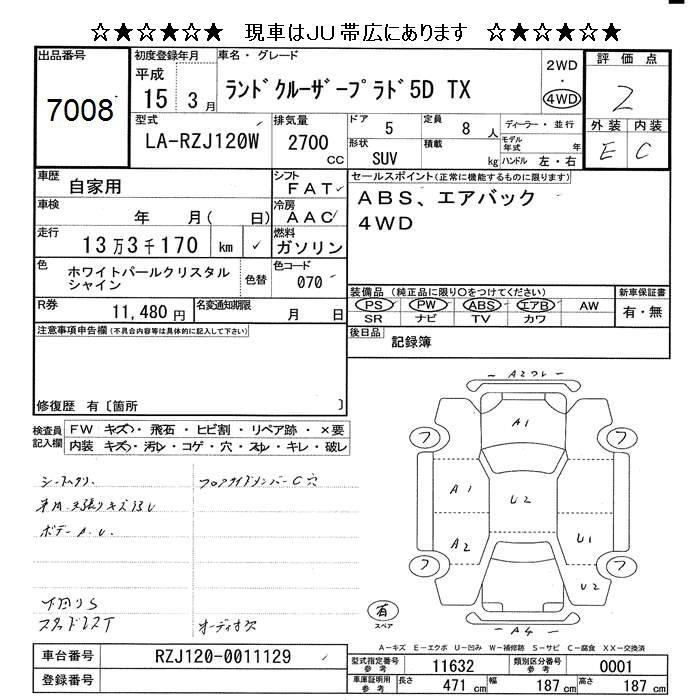 ☆★☆★☆★ 現車はJU帯広にあります ☆★☆★☆★
出品番号
7008
初度登録年月
平成
15 3月
車名・グレード
ランドクルーザープラド5D TX
2WD
・
4WD
評価点
2
外装 内装
E C
型式
LA-RZJ120W
排気量
2700
cc
ドア
5
定員
8 人
ディーラー・並行
モデル年式 年
形状
SUV
積載
kg
ハンドル 左・右
車歴
自家用
シフト
FAT
車検
年 月( 日)
冷房
AAC
走行
13万3千170 km ✓
燃料
ガソリン
色
ホワイトパールクリスタル
シャイン
色替
色コード
070
R券
11,480円
名変通知期限
月 日
セールスポイント(正常に機能するものに限ります)
ABS、エアバック
4WD
装備品(純正品に限り○をつけてください)
PS PW ABS エアB AW
SR ナビ TV カワ
新車保証書
有・無
後日品
記録簿
注意事項申告欄(不具合内容等は具体的に記入して下さい)
修復歴 有〔箇所 〕
検査員
記入欄
FW キズ・飛石・ヒビ割・リペア跡・×要
内装 キズ・汚レ・コゲ・穴・スレ・キレ・破レ
フロアサイドメンバーC穴
ボデーA.U.
下回りS
オーディオ欠
A1
A1
U2
A2
U1
U2
A4
フ
フ
フ
フ
有
スペア
A-キズ E-エクボ U-凹み W-補修跡 S-サビ C-腐食 XX-交換済
車台番号
RZJ120-0011129
登録番号
型式指定番号
参考
11632
類別区分番号
参考
0001
車庫証明用
参考
長さ 471 cm 幅 187 cm 高さ 187 cm